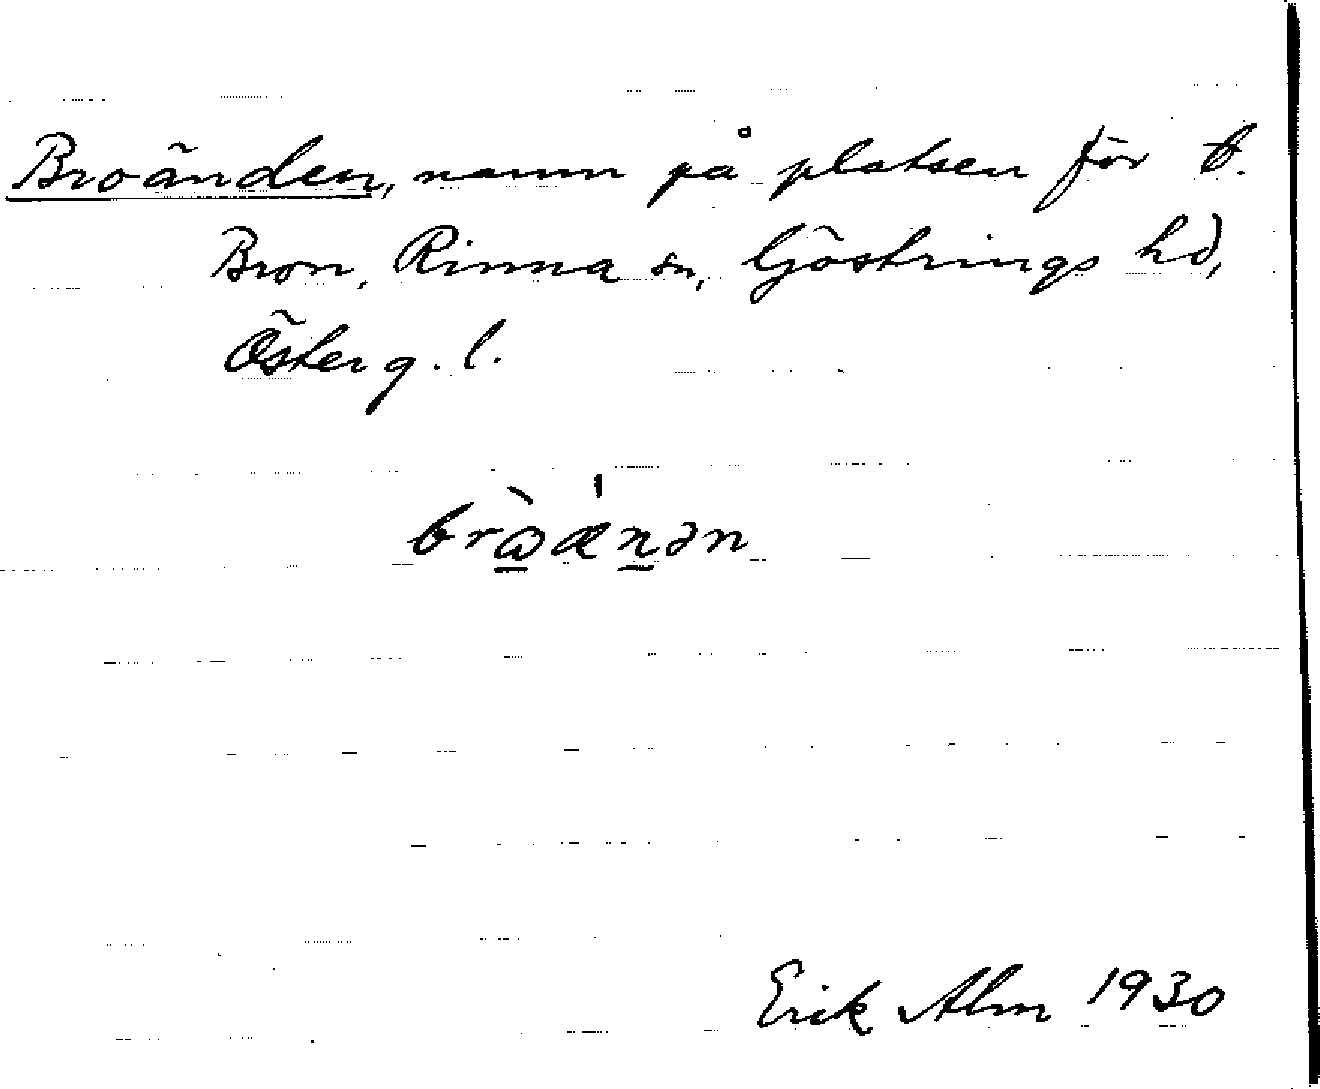 Broänden, namn på platsen för t.
Bron, Rinna sn, Göstrings hd,
Österg. l.
brὼ̱æ̍ṉən
Erik Alm 1930